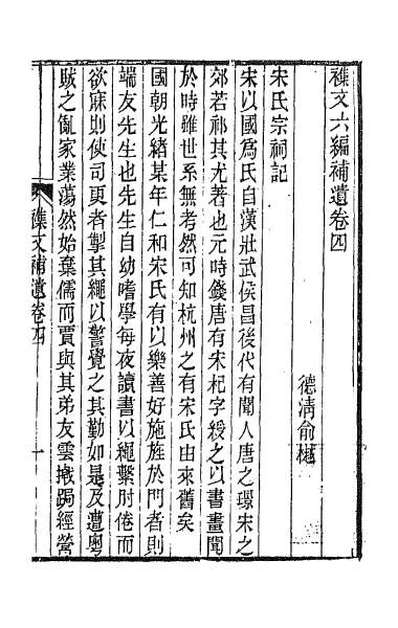 襍文六編補遺卷四
德淸俞樾
宋氏宗祠記
宋以國爲氏自漢壯武侯昌後代有聞人唐之璟宋之
郊若祁其尤著也元時錢唐有宋杞字授之以書畫聞
於時雖世系無考然可知杭州之有宋氏由來舊矣
國朝光緒某年仁和宋氏有以樂善好施旌於門者則
端友先生也先生自幼嗜學每夜讀書以繩繫肘倦而
欲寐則使司更者掣其繩以警覺之其勤如是及遭粵
賊之亂家業蕩然始棄儒而賈與其弟友雲㩻跼經營
襍文補遺卷四
一